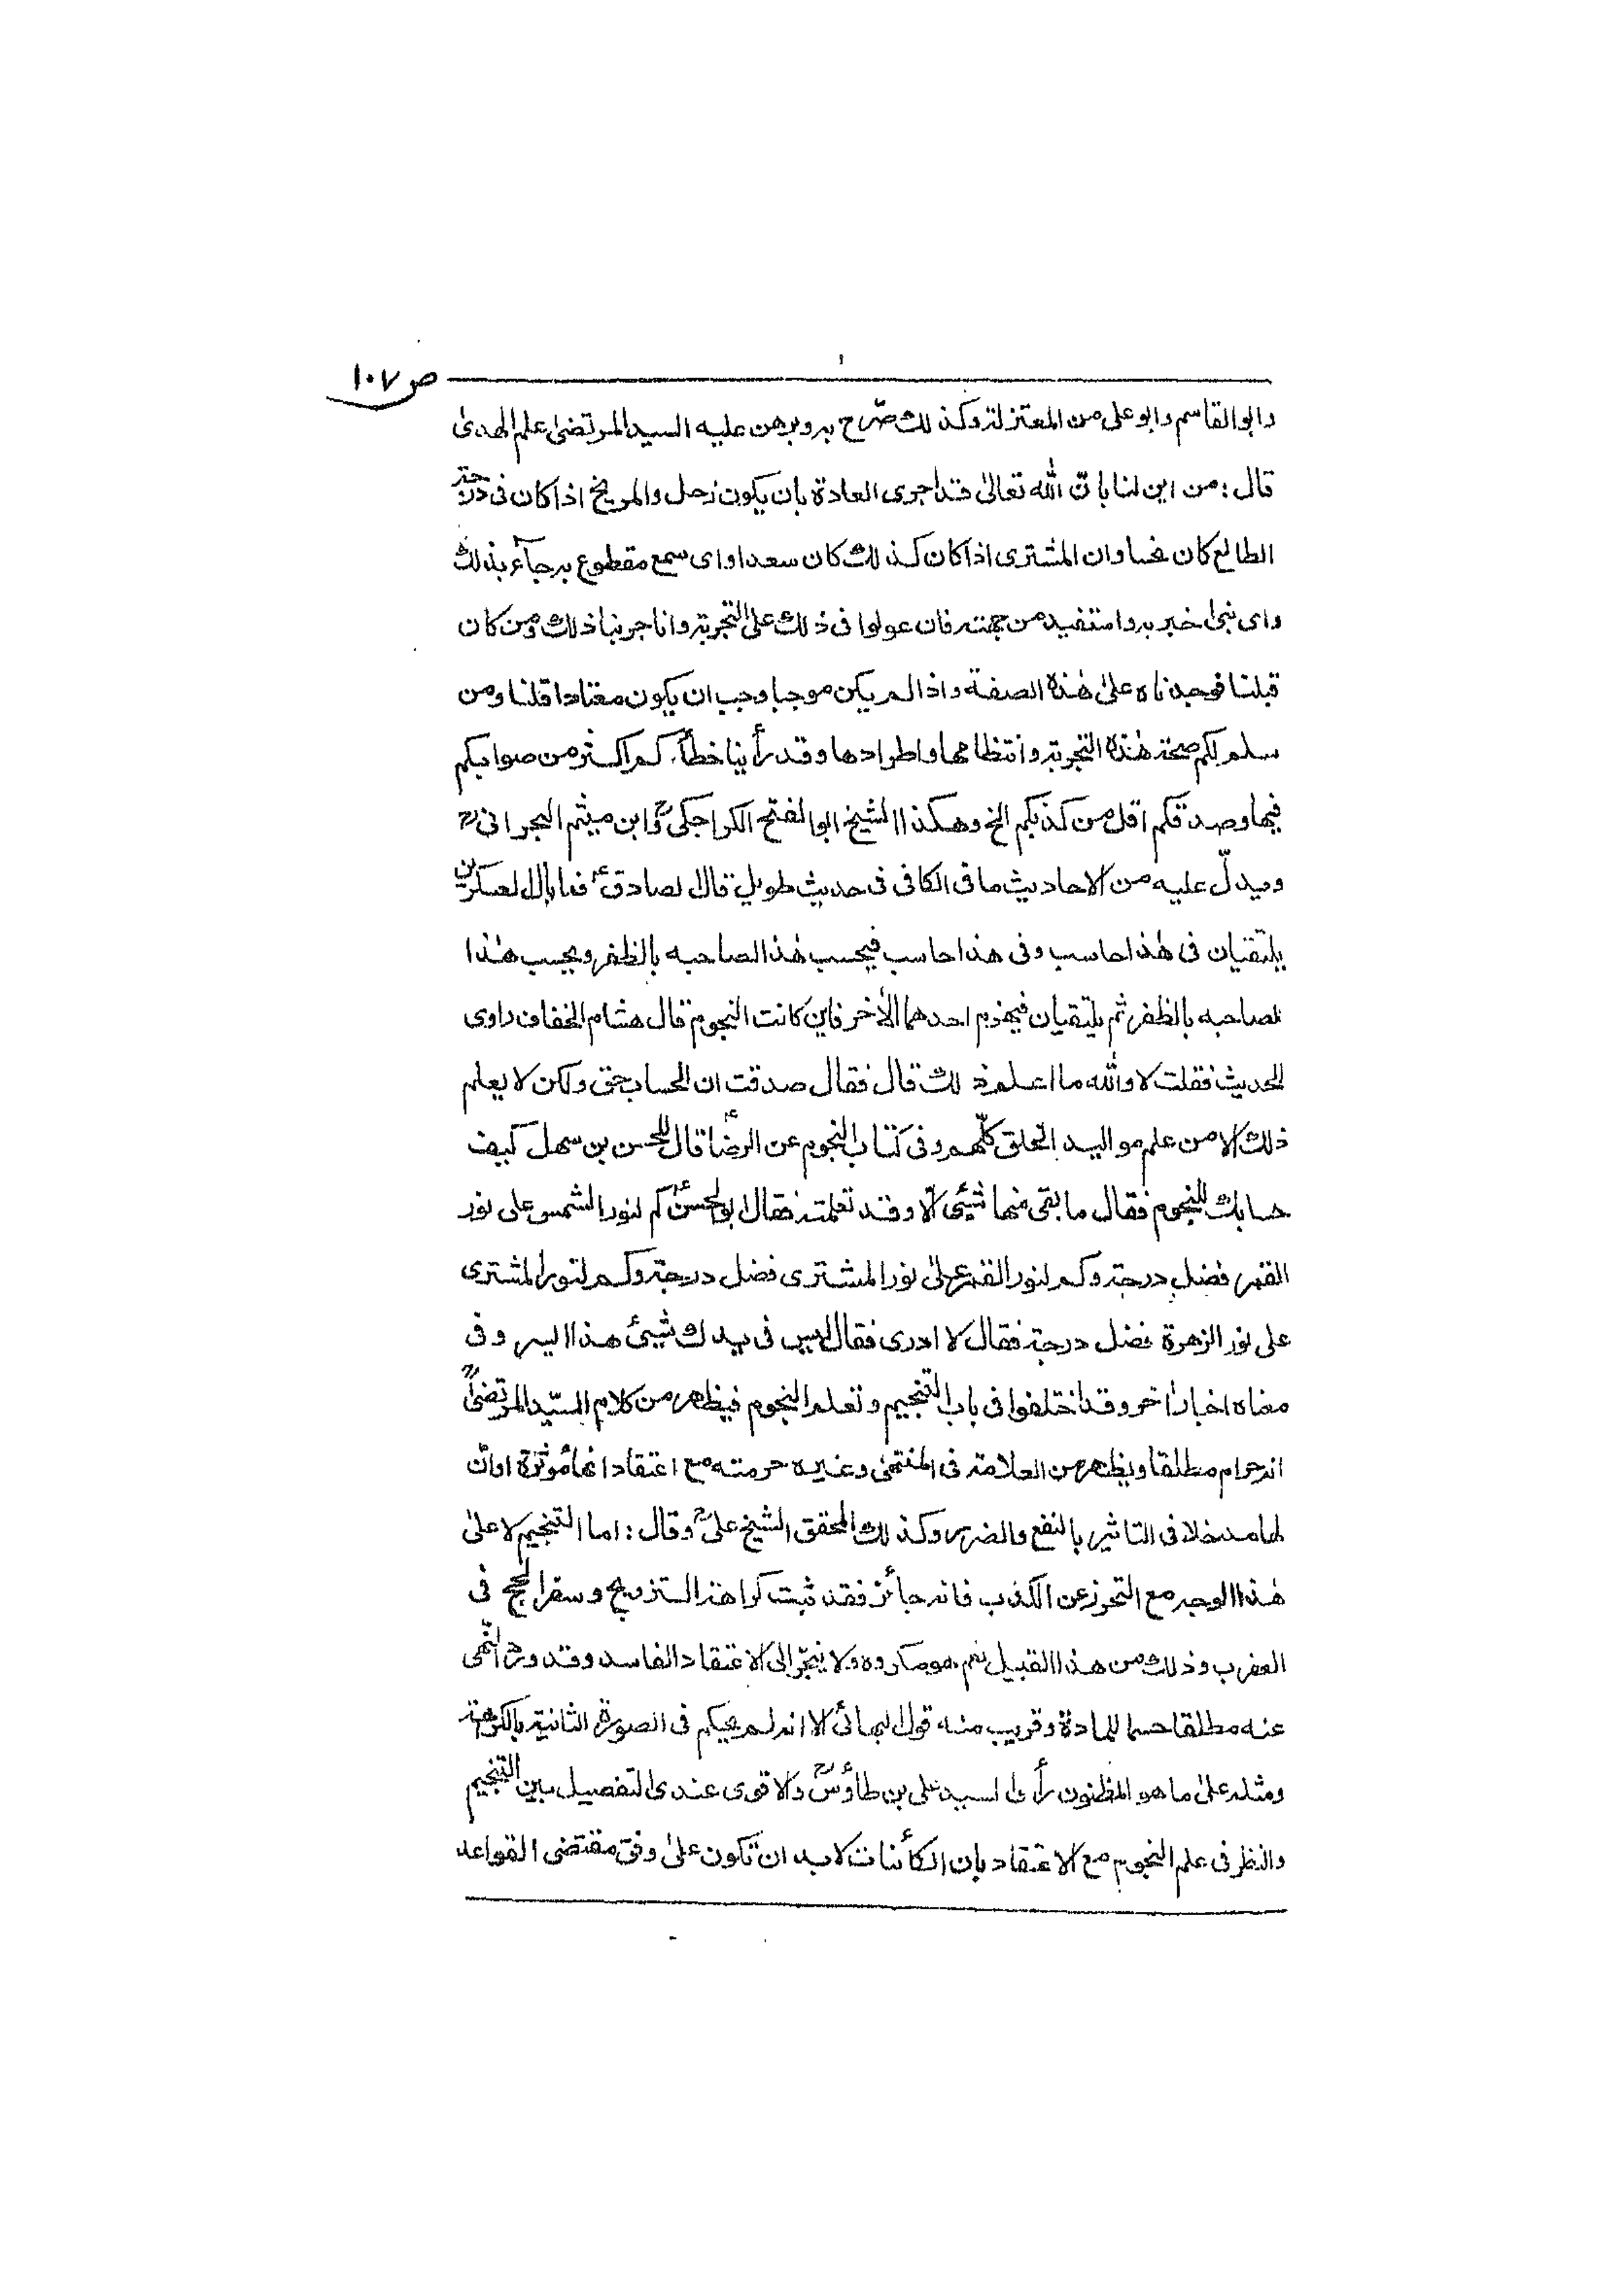 ص ١٠٧
وابوالقاسم وابوعلی من المعتزلة وکذلك صّرح به وبرهن علیه السید المرتضیٰ علم الهدیٰ
قال : من این لنا بانّ الله تعالیٰ قد اجری العادة بان یکون زحل والمریخ اذا کان فی درجة
الطالع کان نحسا وان المشتری اذا کان کذلك کان سعدا وای سمع مقطوع به جآء بذلك
وای نبیٰ خبر به واستفید من جهته فان عولوا فی ذلك علیٰ التجربة وانا جربنا ذلك ومن کان
قبلنا فوجدناه علیٰ هٰذه الصفة واذا لم یکن موجبا وجب ان یکون معتادا قلنا ومن
سلم لکم صحة هٰذه التجربة وانتظامها واطرادها وقد رأینا خطأکم اکثر من صوابکم
فیها وصدقکم اقل من کذبکم الخ وهکذا الشیخ ابوالفتح الکراجکیؒ وابن میثم البحرانیؒ
ویدلّ علیه من الاحادیث ما فی الکافی فی حدیث طویل قال الصادقؑ فما بال العسکرین
یلتقیان فی هٰذا حاسب وفی هذا حاسب فیحسب هٰذا لصاحبه بالظفر ویحسب هٰذا
لصاحبه بالظفر ثم یلتقیان فیهزم احدهما الأخر فاین کانت النجوم قال هشام الخفاف راوی
الحدیث فقلت لا والله ما اعلم ذلك قال فقال صدقت ان الحساب حق ولکن لا یعلم
ذلك الا من علم موالید الخلق کلّهم وفی کتاب النجوم عن الرضاؑ قال للحسن بن سهل کیف
حسابك للنجوم فقال ما بقی منها شیئی الّا وقد تعلمته فقال ابوالحسنؑ کم لنور الشمس علی نور
القمر فضل درجة وکم لنور القمر علیٰ نور المشتری فضل درجة وکم لنور المشتری
علی نور الزهرة فضل درجة فقال لا ادری فقال لیس فی یدك شیئ هذا الیسر وفی
معناه اخبار اٰخر وقد اختلفوا فی باب التنجیم وتعلم النجوم فیظهر من کلام السیّد المرتضیٰؒ
انه حرام مطلقا ویظهر من العلامة فی المنتهیٰ وغیره حرمته مع اعتقاد انها مؤثرة او انّ
لها مدخلا فی التاثیر بالنفع والضرر وکذلك المحقق الشیخ علیؒ وقال : اما التنجیم لا علیٰ
هٰذا الوجه مع التحرز عن الکذب فانه جائز فقد ثبت کراهة التزویج وسفر الحج فی
العقرب وذلك من هذا القبیل نعم هو مکروه ولا ینجّر الی الاعتقاد الفاسد وقد ورد النّهی
عنه مطلقا حسما للمادة وقریب منه قول البهائی الا انه لم یحکم فی الصورة الثانیة بالکراهة
ومثله علیٰ ما هو المظنون رأی السید علی بن طاؤسؒ والاقوی عندی التفصیل بین التنجیم
والنظر فی علم النجوم مع الاعتقاد بان الکأئنات لابد ان تکون علیٰ وفق مقتضی القواعد